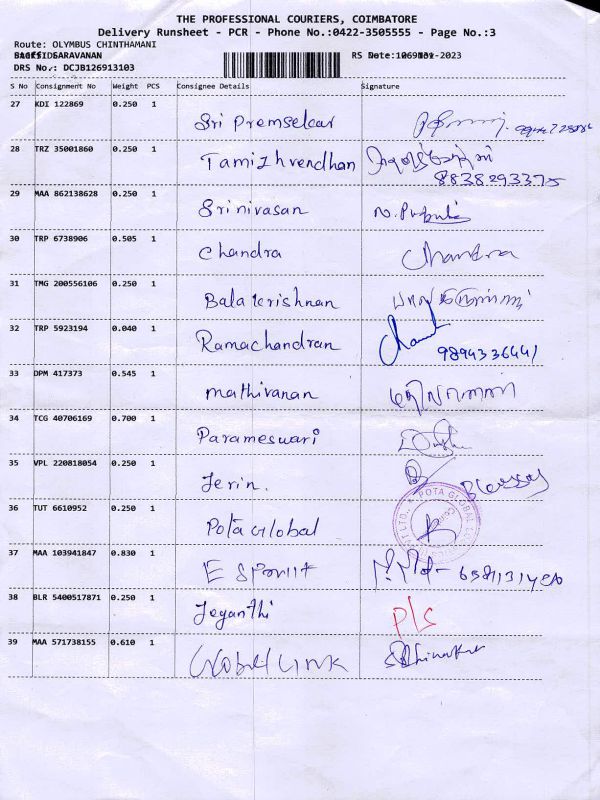 THE PROFESSIONAL COURIERS, COIMBATORE
Delivery Runsheet - PCR - Phone No.:0422-3505555 - Page No.:3
Route: OLYMBUS CHINTHAMANI
SARAVANAN
DRS No.: DCJB126913103
S No Consignment No Weight PCS Consignee Details Signature
27 KDI 122869 0.250 1 Sri Premsekar
28 TRZ 35001860 0.250 1 Tamizhvendhan
8838293375
29 MAA 862138628 0.250 1 Srinivasan
30 TRP 6738906 0.505 1 Chandra Chandra
31 TMG 200556106 0.250 1 Balakrishnan
32 TRP 5923194 0.040 1 Ramachandran
9894336441
33 DPM 417373 0.545 1 Mathivanan
34 TCG 40706169 0.700 1 Parameswari
35 VPL 220818054 0.250 1 Jerin.
36 TUT 6610952 0.250 1 Pota Global
POTA GLOBAL
37 MAA 103941847 0.830 1
38 BLR 5400517871 0.250 1 Jeyanthi P/S
39 MAA 571738155 0.610 1 Global Link